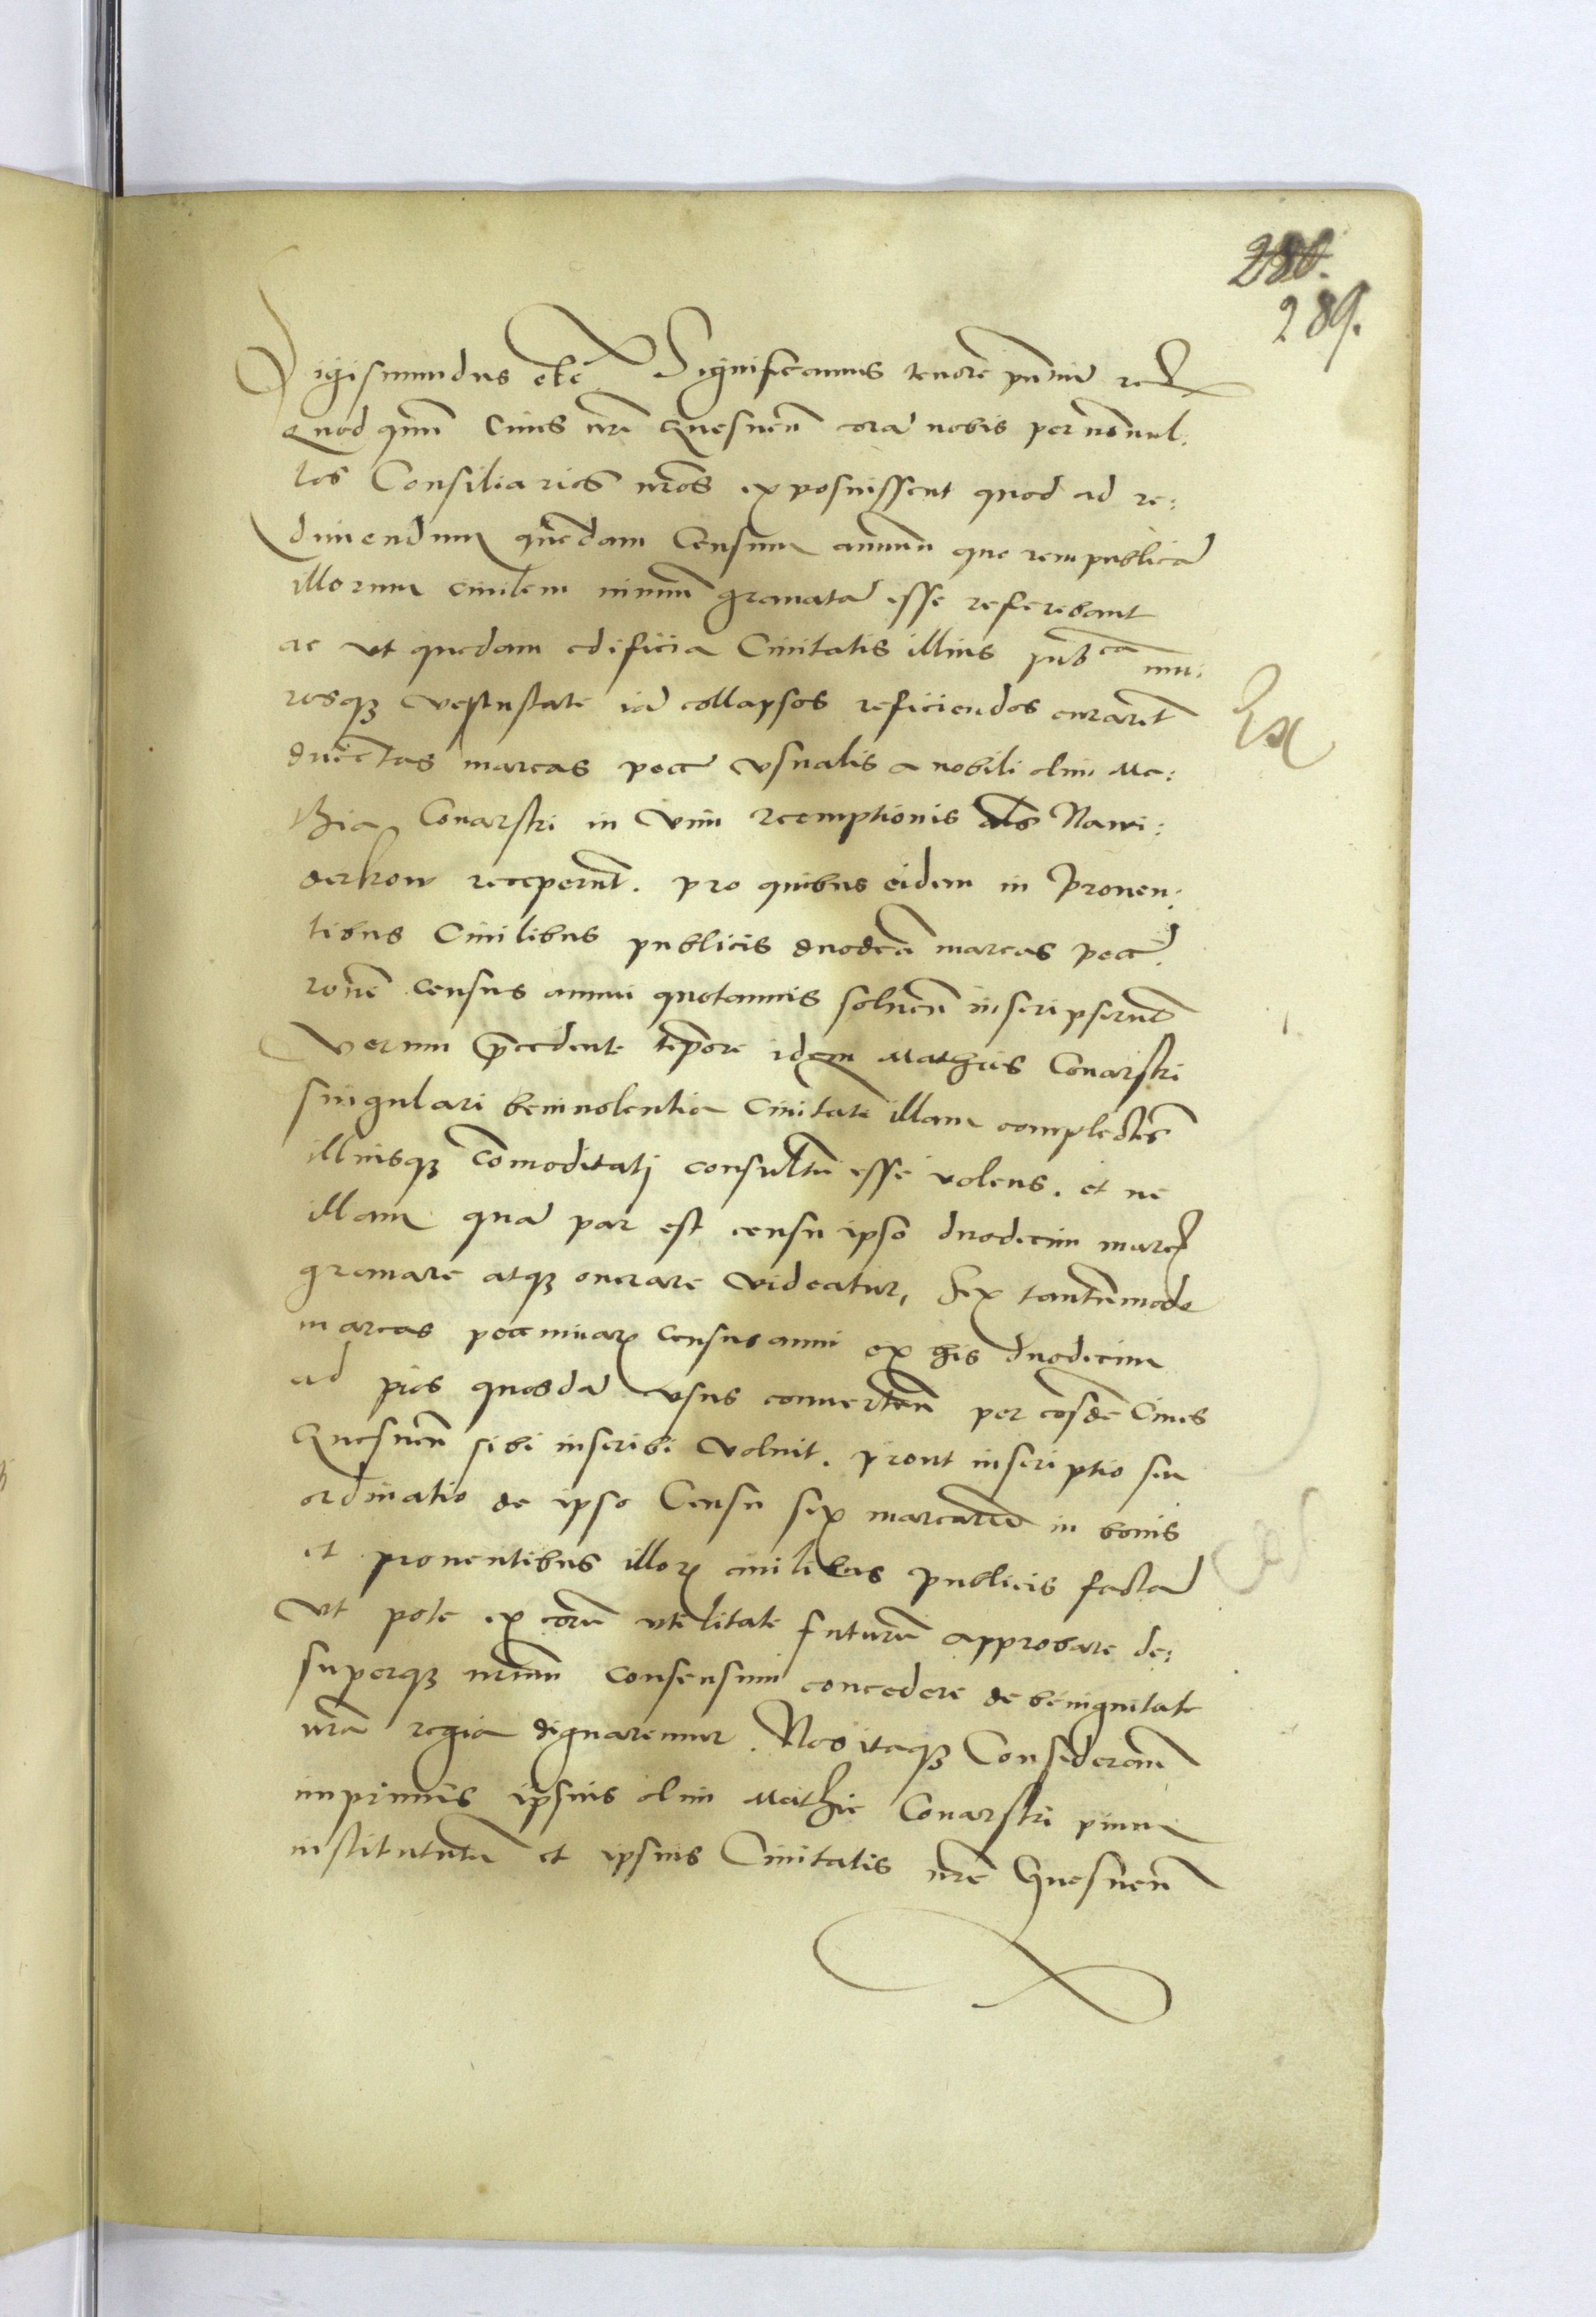 280.
289.
Sigismundus etc Significamus tenore pntiu
Quod qum Ciues nri Gnesnen cora nobis per nonnul.
los Consiliarios nros exposuissent quod ad re:
dimendum quendam Censum annuu quo rempublica
illorum ciuilem nimiu grauata esse referebant
ac vt quedam edificia Ciuitatis illius pub ca mu:
rosq vetustate ia collapsos reficiendos curaret
ducetas marcas pecc usualis a nobili olim Ma:
thia Conarski in vim reemptionis als Nawi:
derkow receperunt. pro quibus eidem in Prouen:
tibus Ciuilibus publicis duodeci marcas pecc
rone census annui quotannis soluen inscripserunt
Verum pcedente tepore idem Mathias Conarski
singulari beniuolentia Ciuitate illam complectes
illiusq comoditati consultu esse volens. et ne
illam qua par est censu ipso duodecim marc
grauare atq onerare videatur, sex tantumodo
marcas pecuniar census anni ex his duodecim
ad pios quosda vsus conuerten per eosde Ciues
Gnesnen sibi inscribi voluit. prout inscriptio seu
ordinatio de ipso Censu sex marcaru in bonis
et prouentibus illor ciuilibus publicis facta
Vt pote ex eoru vtilitate futura approbare de:
superq nrum consensum concedere de benignitate
nra regia dignaremur. Nos itaq Consideran
imprimis ipsius olim Mathie Conarski pium
institututu et ipsius Ciuitatis nre Gnesnen
Ex